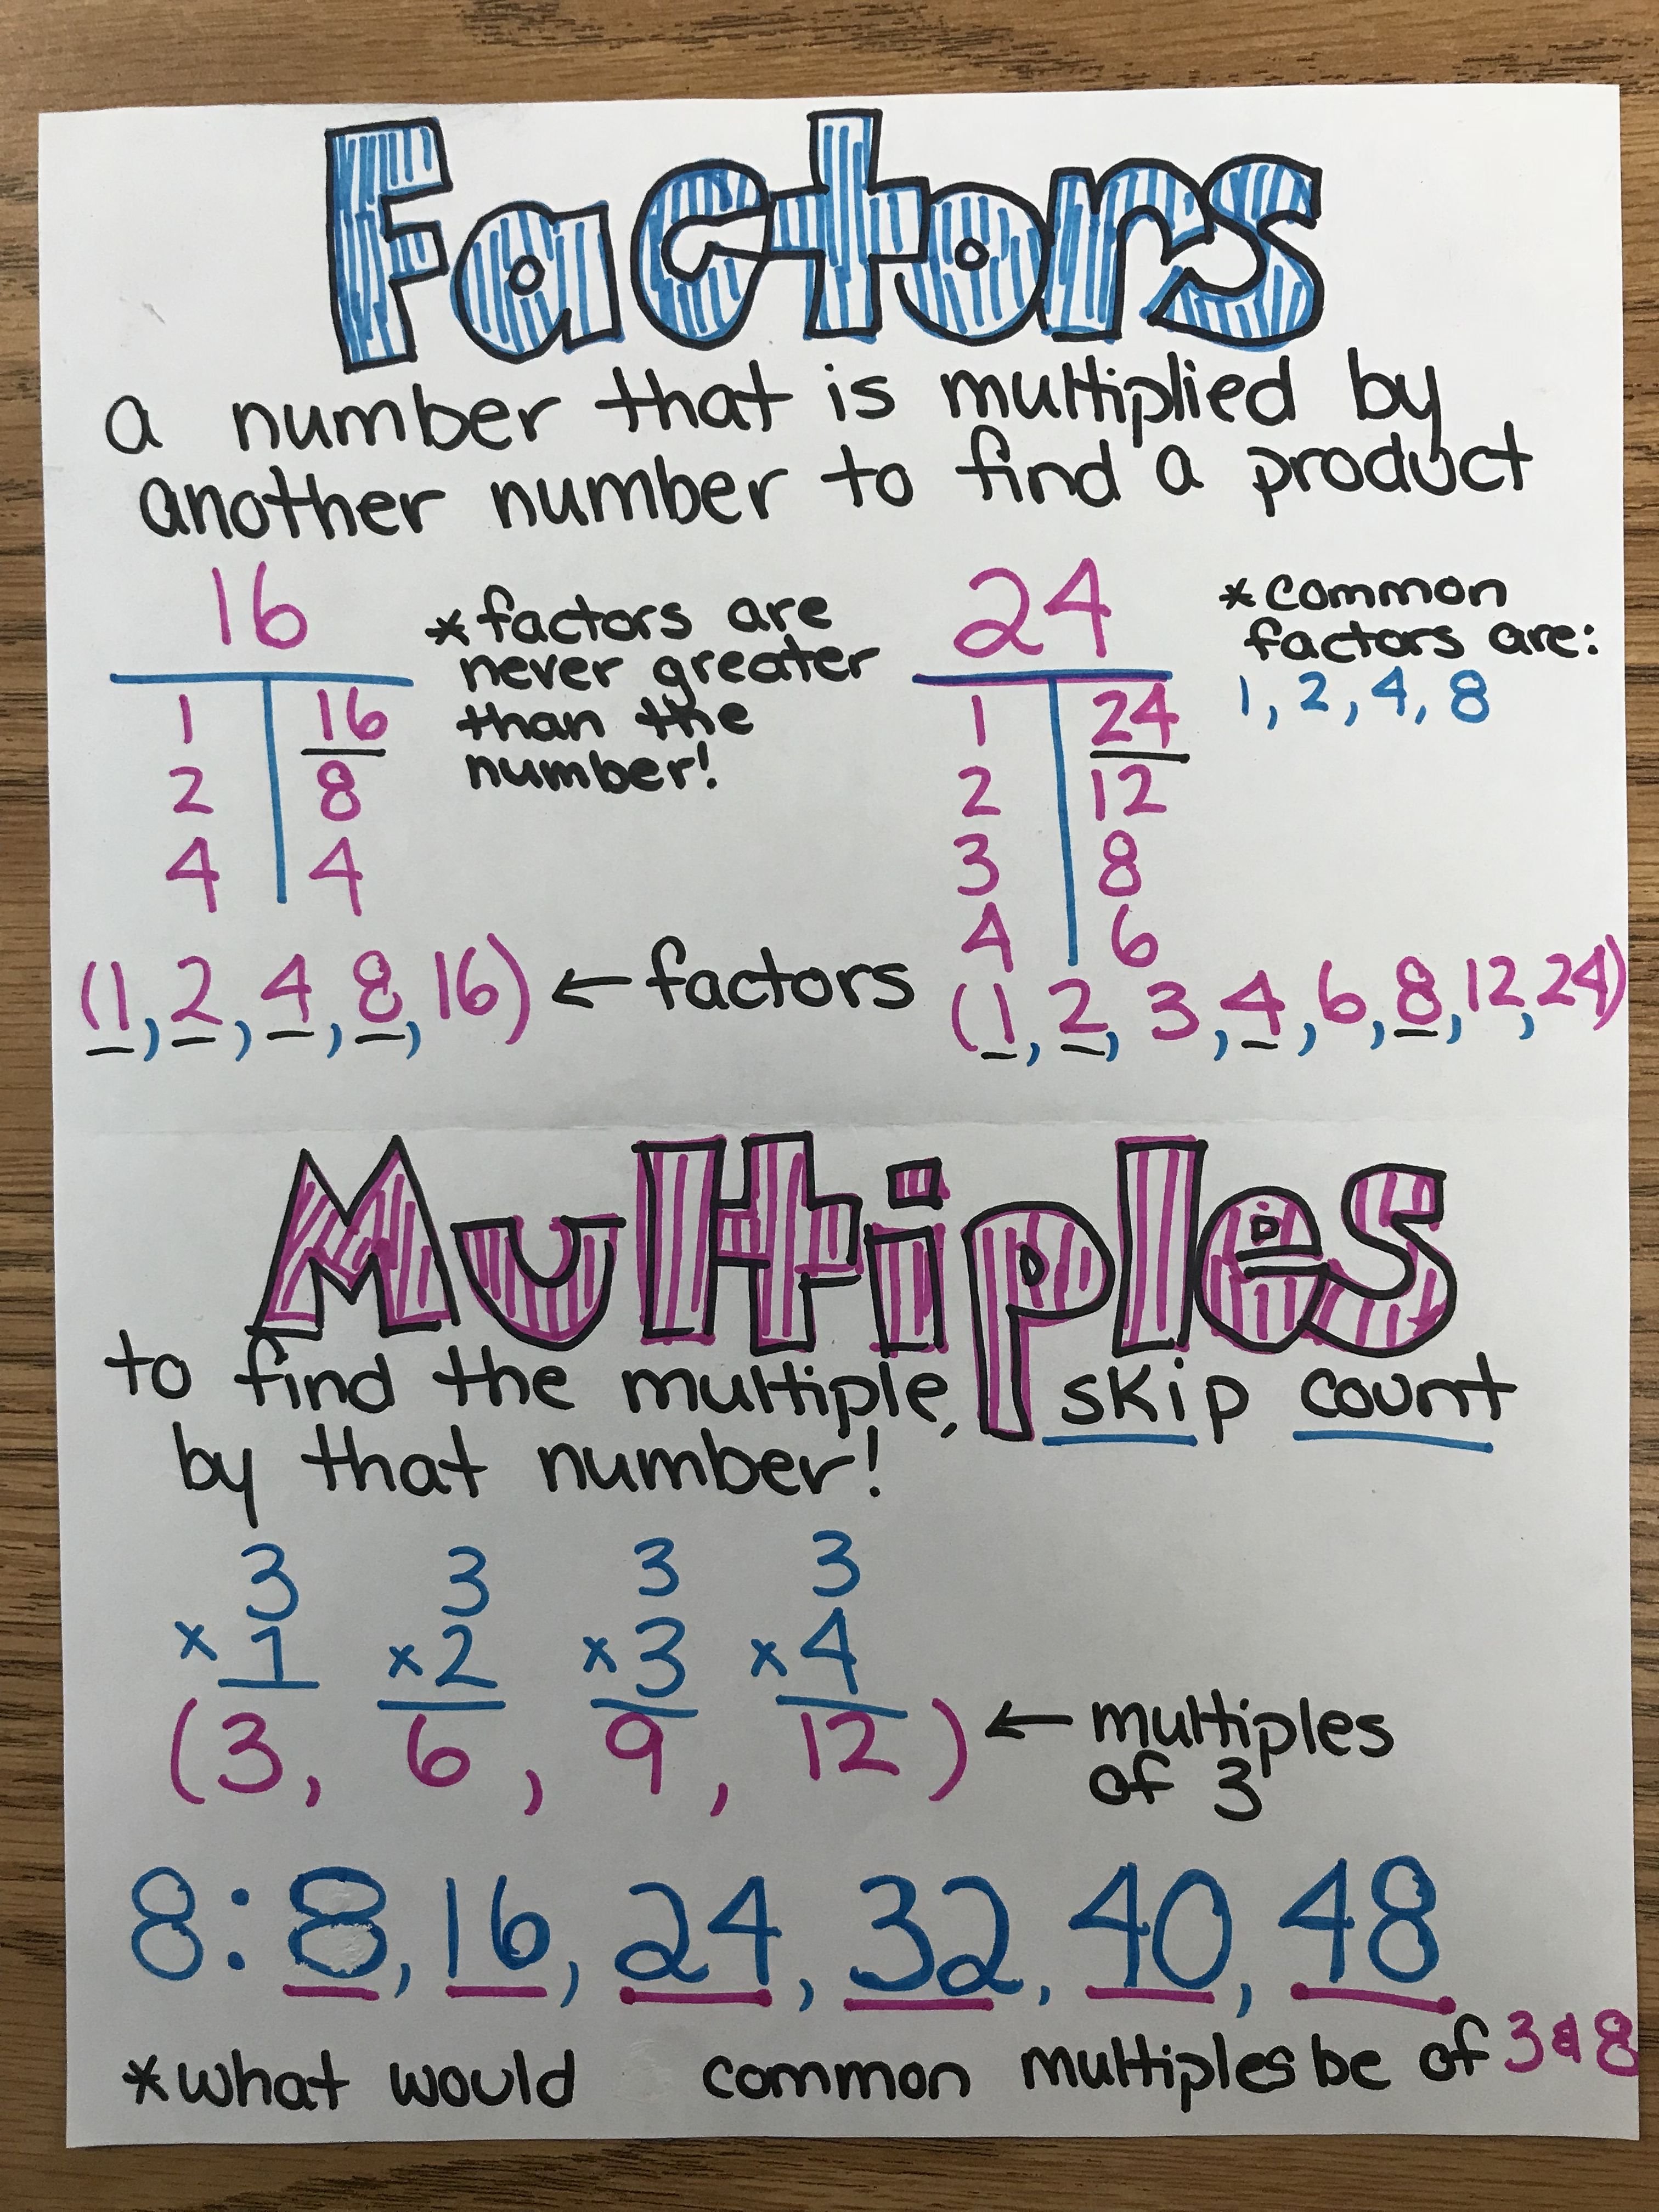 Factors
a number that is multiplied by
another number to find a product
16
1 16
2 8
4 4
* factors are
never greater
than the
number!
(1, 2, 4, 8, 16) ← factors
24
1 24
2 12
3 8
4 6
* common
factors are:
1, 2, 4, 8
(1, 2, 3, 4, 6, 8, 12, 24)
Multiples
to find the multiple, skip count
by that number!
3 3 3 3
x 1 x 2 x 3 x 4
(3, 6, 9, 12) ← multiples
of 3
8: 8, 16, 24, 32, 40, 48
* what would common multiples be of 3 & 8